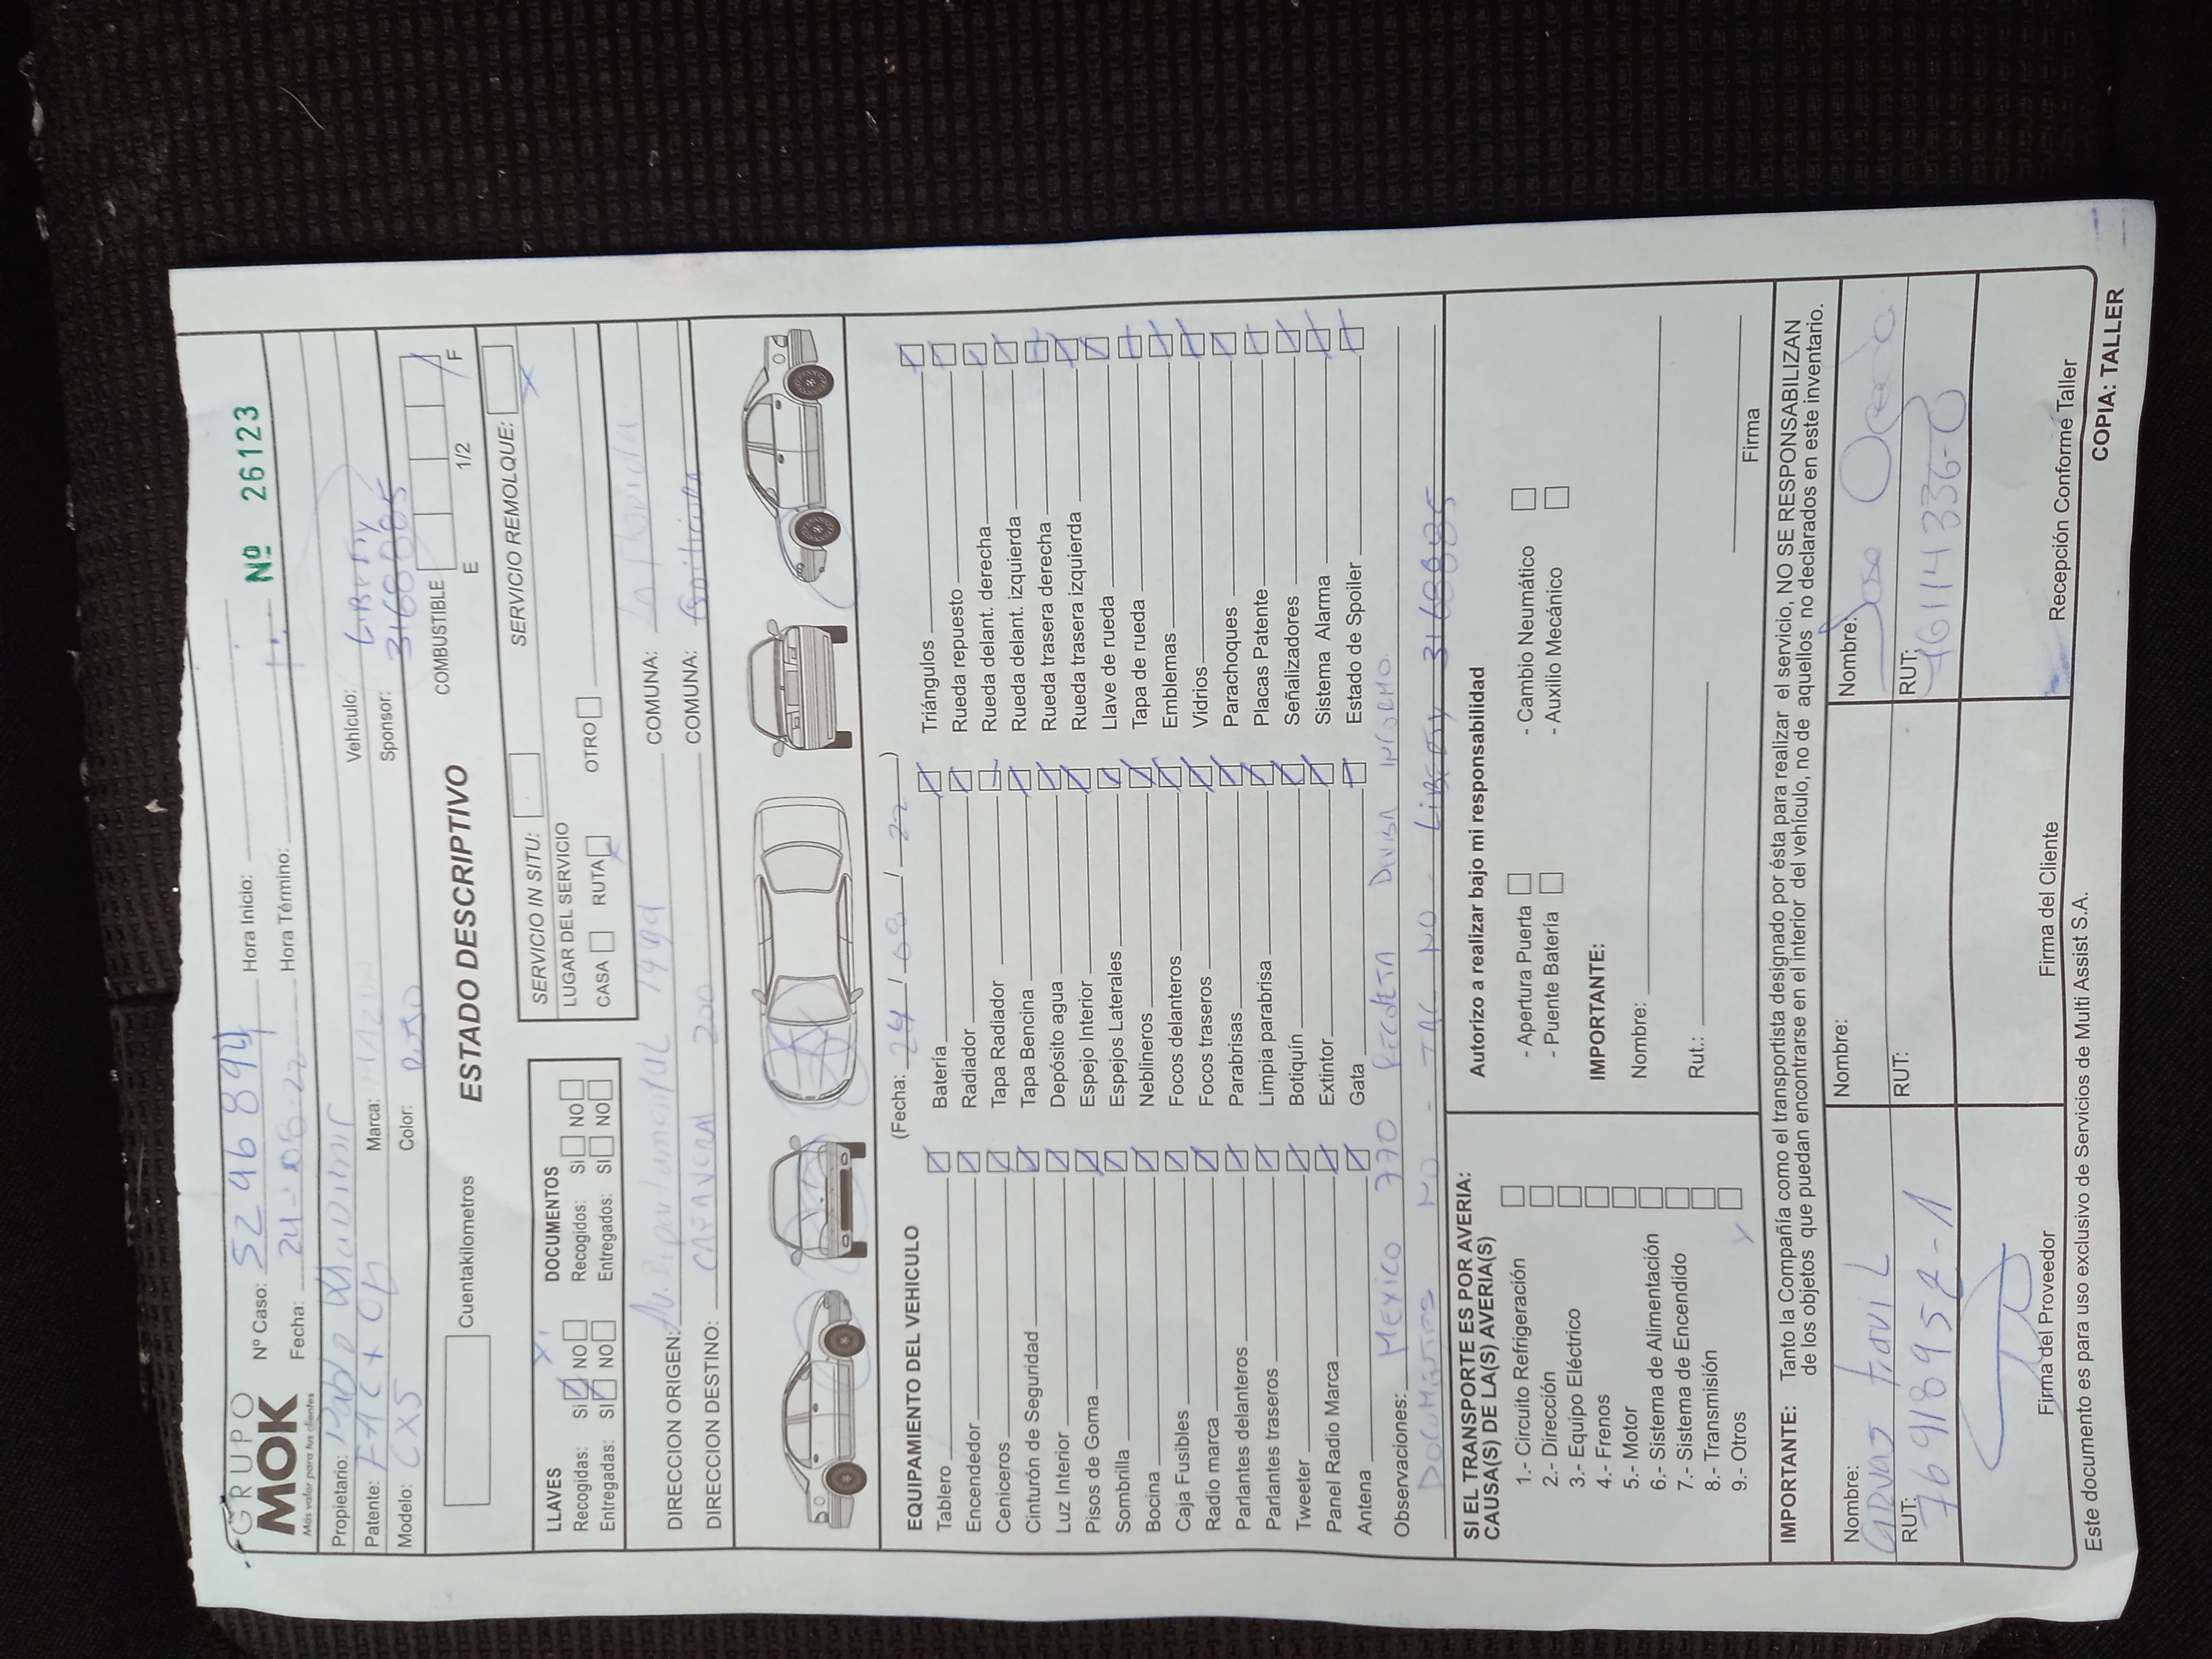 GRUPO
MOK
Más valor para tus clientes
Nº Caso: 5246894 Hora Inicio: Nº 26123
Fecha: 24-08-22 Hora Término:
Propietario: Pablo
Patente: Marca: MAZDA Vehículo: LIBERTY
Modelo: CX5 Color: ROJO Sponsor: 3168885
Cuentakilometros ESTADO DESCRIPTIVO COMBUSTIBLE
E 1/2 F
LLAVES
Recogidas: SI NO
Entregadas: SI NO
DOCUMENTOS
Recogidos: SI NO
Entregados: SI NO
SERVICIO IN SITU: SERVICIO REMOLQUE:
LUGAR DEL SERVICIO
CASA RUTA OTRO
DIRECCION ORIGEN: Av. Departamental COMUNA: La Florida
DIRECCION DESTINO: 200 COMUNA:
EQUIPAMIENTO DEL VEHICULO (Fecha: 24 / 08 / 22 )
Tablero Batería Triángulos
Encendedor Radiador Rueda repuesto
Ceniceros Tapa Radiador Rueda delant. derecha
Cinturón de Seguridad Tapa Bencina Rueda delant. izquierda
Luz Interior Depósito agua Rueda trasera derecha
Pisos de Goma Espejo Interior Rueda trasera izquierda
Sombrilla Espejos Laterales Llave de rueda
Bocina Neblineros Tapa de rueda
Caja Fusibles Focos delanteros Emblemas
Radio marca Focos traseros Vidrios
Parlantes delanteros Parabrisas Parachoques
Parlantes traseros Limpia parabrisa Placas Patente
Tweeter Botiquín Señalizadores
Panel Radio Marca Extintor Sistema Alarma
Antena Gata Estado de Spoiler
Observaciones: MEXICO 770 RECOLETA
DOCUMENTOS NO - TAG NO - LIBERTY 3168885
SI EL TRANSPORTE ES POR AVERIA:
CAUSA(S) DE LA(S) AVERIA(S)
1.- Circuito Refrigeración
2.- Dirección
3.- Equipo Eléctrico
4.- Frenos
5.- Motor
6.- Sistema de Alimentación
7.- Sistema de Encendido
8.- Transmisión
9.- Otros
Autorizo a realizar bajo mi responsabilidad
- Apertura Puerta - Cambio Neumático
- Puente Batería - Auxilio Mecánico
IMPORTANTE:
Nombre:
Rut.: Firma
IMPORTANTE: Tanto la Compañía como el transportista designado por ésta para realizar el servicio, NO SE RESPONSABILIZAN
de los objetos que puedan encontrarse en el interior del vehículo, no de aquellos no declarados en este inventario.
Nombre: Nombre: Nombre: Jose
RUT: RUT: RUT: 16114336-0
Firma del Proveedor Firma del Cliente Recepción Conforme Taller
Este documento es para uso exclusivo de Servicios de Multi Assist S.A.
COPIA: TALLER